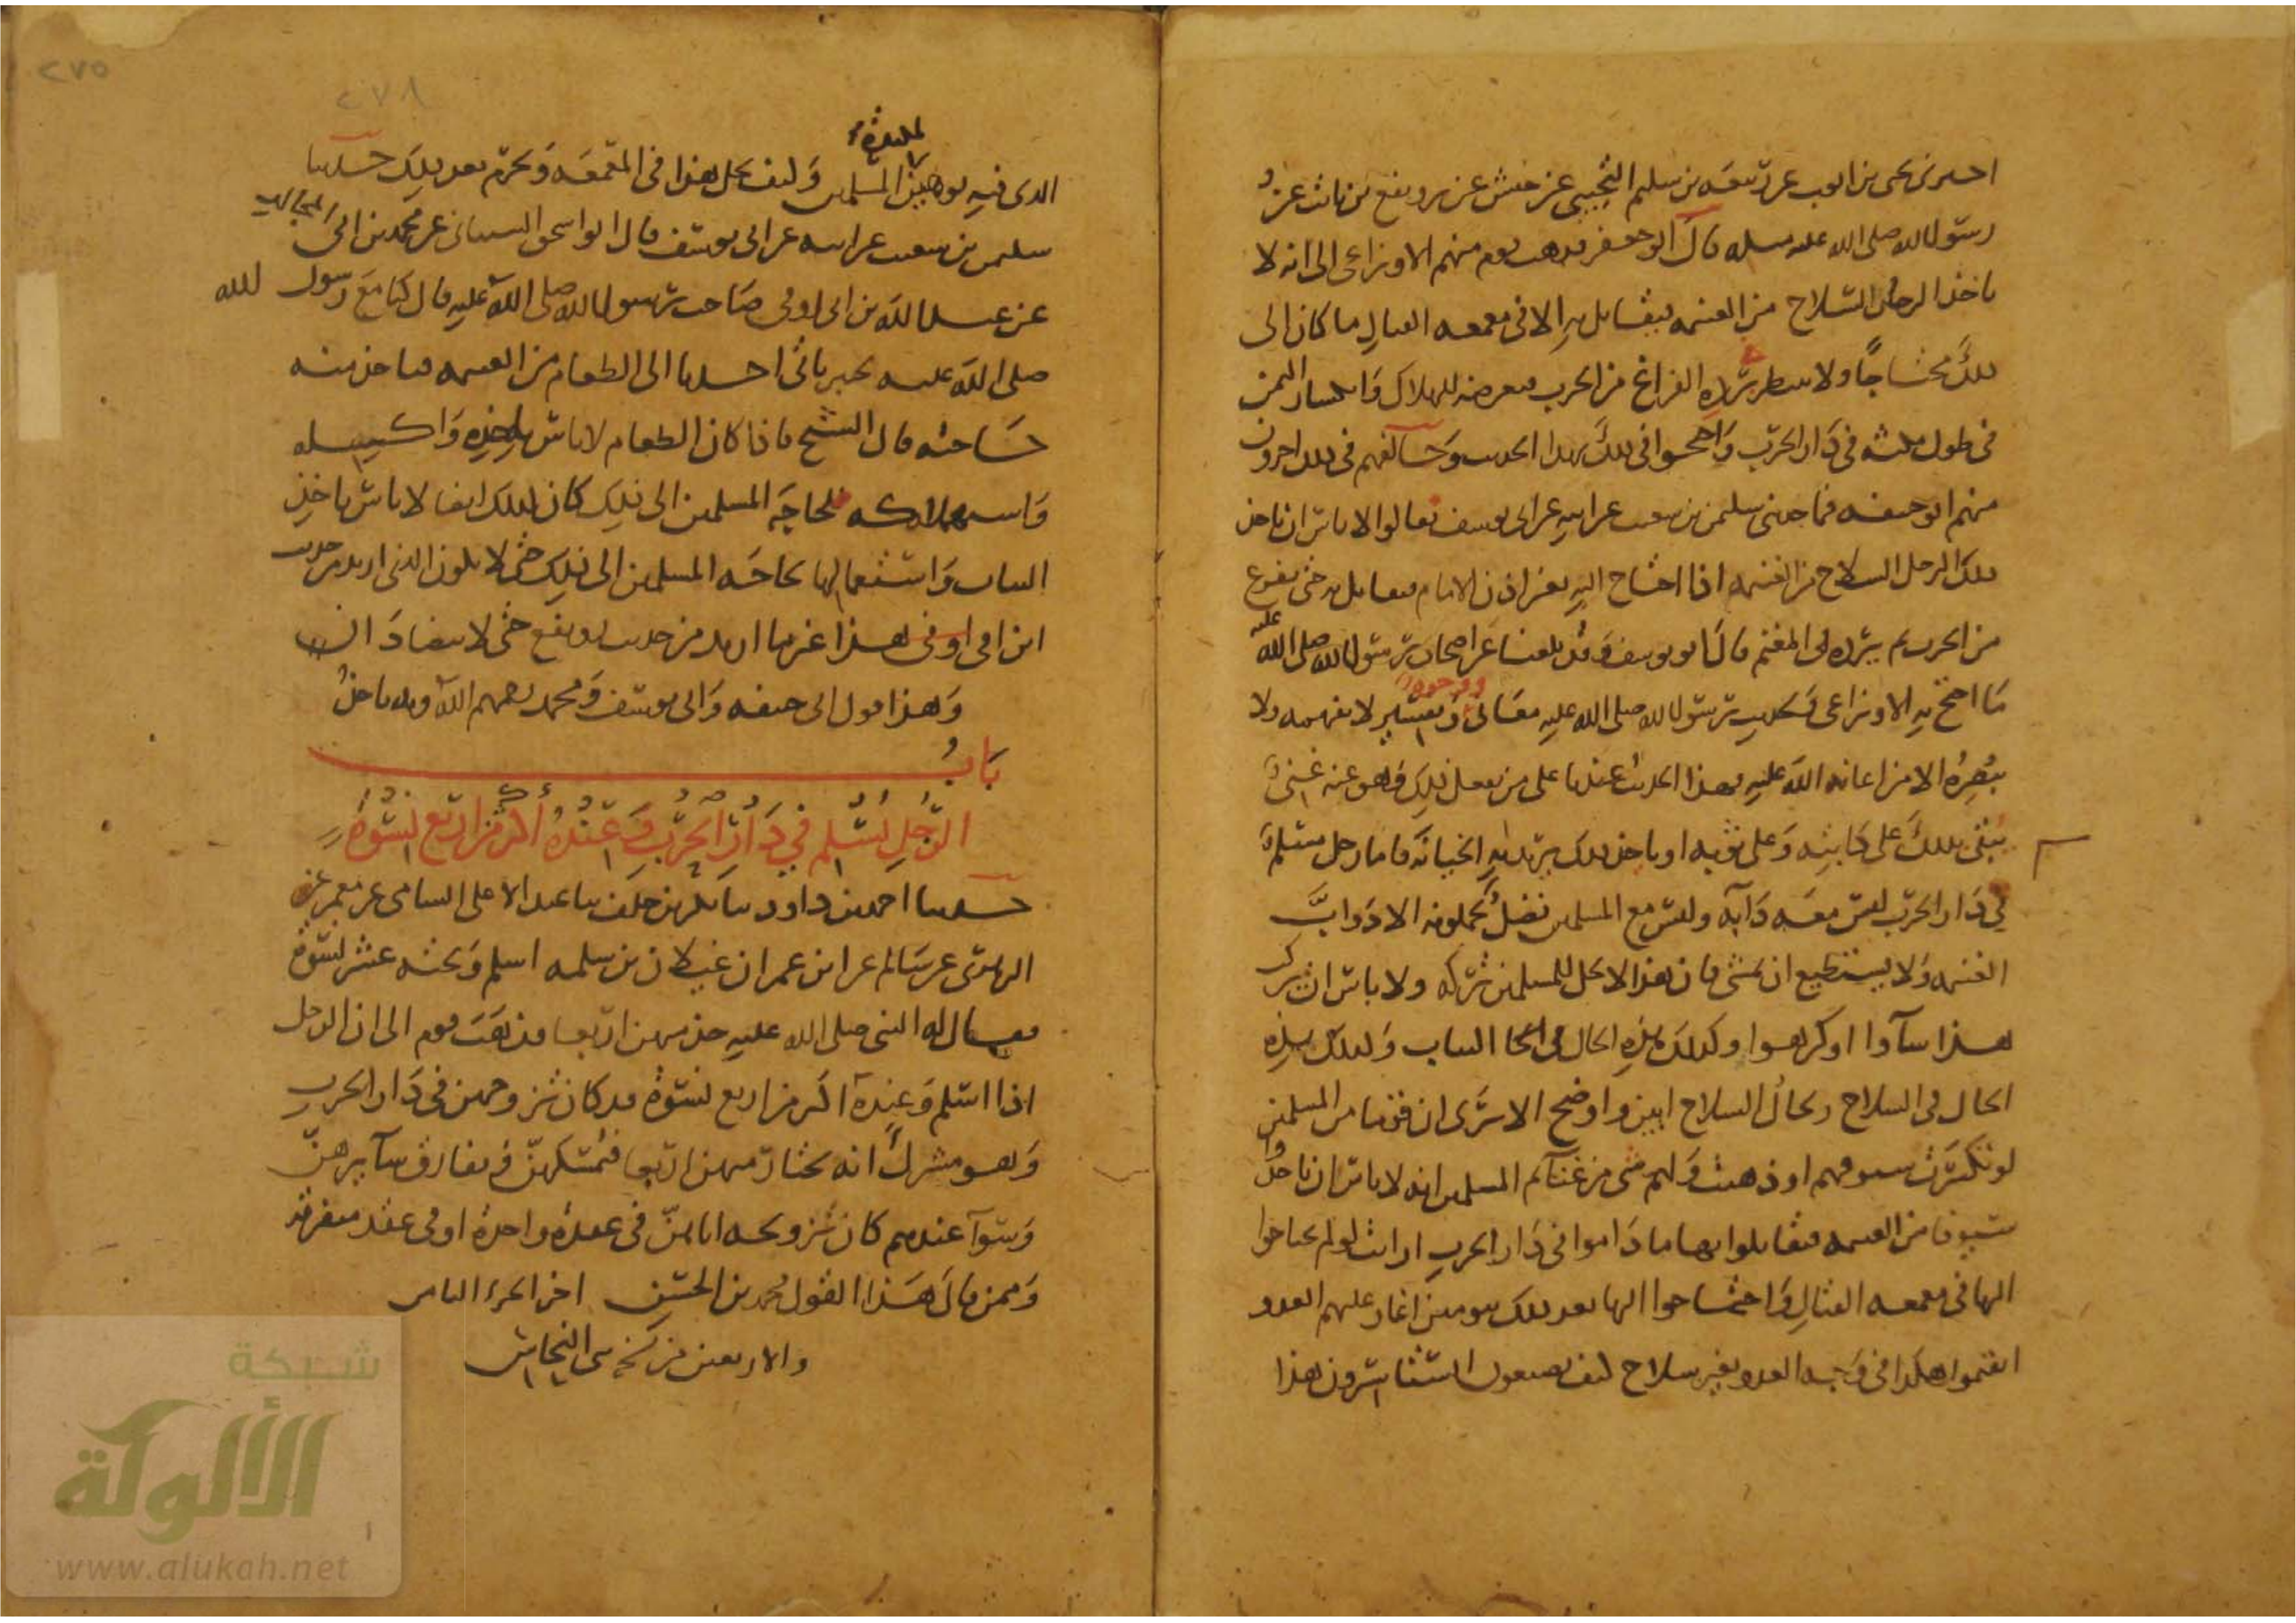 اخبرني يحيى بن ايوب عن ربيعة بن سليم التجيبي عن حنش عن رويفع بن ثابت عن
رسول الله صلى الله عليه وسلم قال ابو جعفر فذهب قوم منهم الاوزاعي الى انه لا
ياخذ الرجل السلاح من الغنيمة فيقاتل به الا في معمعة القتال ما كان الى
ذلك محتاجا ولا ينتظر برده الفراغ من الحرب فيعرضه للهلاك وانكسار الثمن
في طول مكثه في دار الحرب واحتجوا في ذلك بهذا الحديث وخالفهم في ذلك اخرون
منهم ابو حنيفة فيما حدثني سليمن بن شعيب عن ابيه عن ابي يوسف فقالوا لا باس ان ياخذ
ذلك الرجل السلاح من الغنيمة اذا احتاج اليه بغير اذن الامام فيقاتل به حتى يفرغ
من الحرب ثم يرده في المغنم قال ابو يوسف وقد بلغنا عن اصحاب رسول الله صلى الله عليه
ما احتج به الاوزاعي ولحديث رسول الله صلى الله عليه معاني ووجوه وتفسير لا يفهمه ولا
يبصره الا من اعانه الله عليه فهذا الحديث عندنا على من يفعل ذلك وهو عنه غني
يبقي بذلك على دابته وعلى ثوبه او ياخذ ذلك يريد به الخيانة فاما رجل مسلم
في دار الحرب ليس معه دابة وليس مع المسلمين فضل يحملونه الا دواب
الغنيمة ولا يستطيع ان يمشي فان هذا لا يحل للمسلمين تركه ولا باس ان يركب
هذا شاوا او كرهوا وكذلك هذه الحال في الثياب وكذلك هذه
الحال في السلاح وحال السلاح ابين واوضح الا ترى ان قوما من المسلمين
لو تكسرت سيوفهم او ذهبت ولهم شي من غنائم المسلمين انه لا باس ان ياخذوا
سيوفا من الغنيمة فيقاتلوا بها ما داموا في دار الحرب ارايت لو لم يحتاجوا
اليها في معمعة القتال واحتاجوا اليها بعد ذلك بيومين اغار عليهم العدو
ايقوموا هكذا في وجه العدو بغير سلاح كيف يصنعون ايستاسرون هذا
٢٧٥
٢٧٨
الذي فيه توهين لمكيدة المسلمين وكيف يحل هذا في المعمعة ويحرم بعد ذلك حدثنا
سليمن بن شعيب عن ابيه عن ابي يوسف قال ابو اسحق الشيباني عن محمد بن ابي المجالد
عن عبد الله بن ابي اوفى صاحب رسول الله صلى الله عليه قال كنا مع رسول الله
صلى الله عليه بخيبر ياتي احدنا الى الطعام من الغنيمة فياخذ منه
حاجته قال الشيخ فاذا كان الطعام لا باس باخذه واكله
واستهلاكه لحاجة المسلمين الى ذلك كان كذلك ايضا لا باس باخذ
الثياب واستعمالها لحاجة المسلمين الى ذلك حتى لا يكون الذي اريد من حديث
ابن ابي اوفى هذا غير ما اريد من حديث رويفع حتى لا يتضادان
وهذا قول ابي حنيفة وابي يوسف ومحمد رحمهم الله وبه ناخذ
باب
الرجل يسلم في دار الحرب وعنده اكثر من اربع نسوة
حدثنا احمد بن داود ثنا بكر بن خلف ثنا عبد الاعلى السامي عن معمر عن
الزهري عن سالم عن ابن عمر ان غيلان بن سلمة اسلم وتحته عشر نسوة
فقال له النبي صلى الله عليه خذ منهن اربعا فذهب قوم الى ان الرجل
اذا اسلم وعنده اكثر من اربع نسوة قد كان تزوجهن في دار الحرب
وهو مشرك انه يختار منهن اربعا فيمسكهن ويفارق سايرهن
وسوآ عندهم كان تزويجه اياهن في عقدة واحدة او في عقد متفرقة
وممن قال هذا القول محمد بن الحسن اخر الجزء الثامن
والاربعين من